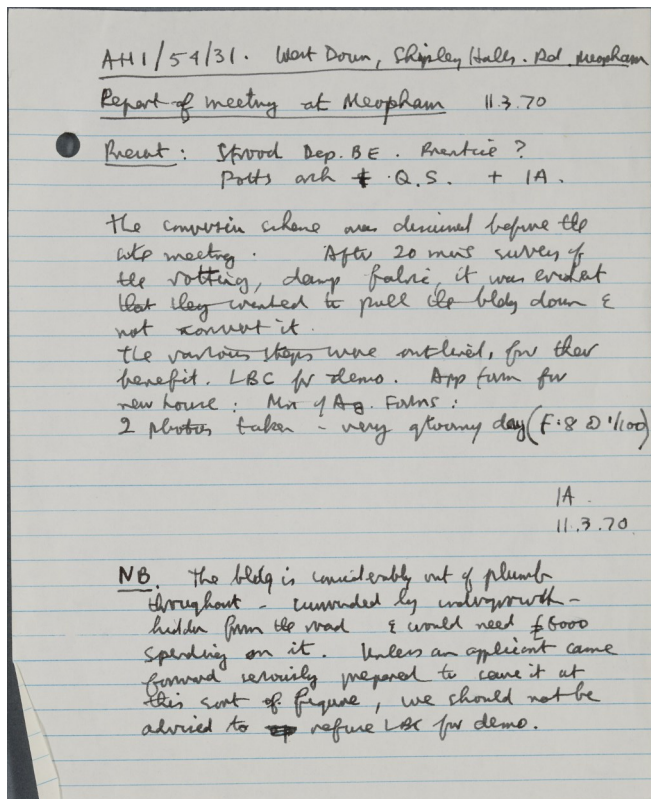 AH1/54/31. West Down, Shipley Hills. Rd Meopham
Report of meeting at Meopham 11.3.70
Present: Strood Dep. BE. Prentice ?
Potts arch + Q.S. + IA.
The conversion scheme was discussed before the
site meeting. After 20 mins survey of
the rotting, damp fabric, it was evident
that they wanted to pull the bldg down &
not convert it.
The various steps were outlined, for their
benefit. LBC for demo. App form for
new house: Min of Ag. Forms:
2 photos taken - very gloomy day (F:8 @ 1/100)
IA.
11.3.70
NB. The bldg is considerably out of plumb
throughout - surrounded by undergrowth -
hidden from the road & would need £6000
spending on it. Unless an applicant came
forward seriously prepared to save it at
this sort of figure, we should not be
advised to refuse LBC for demo.